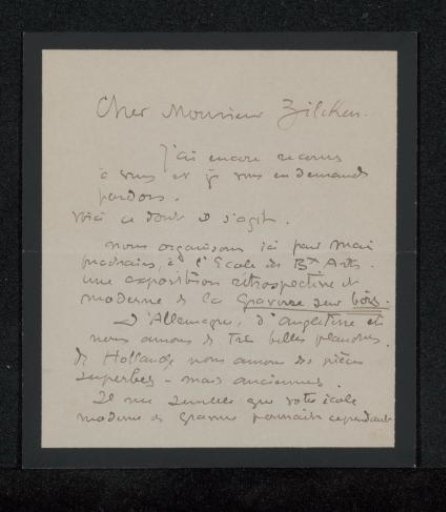 Cher Monsieur Zilcken.
J'ai encore recours
à vous et je vous en demande
pardon.
Voici ce dont il s'agit.
nous organisons ici pour Mai
prochain, à l'Ecole des Bx Arts.
une exposition rétrospective et
moderne de la Gravure sur bois.
D'Allemagne, d'Angleterre et
nous avons de très belles planches.
de Hollande nous avons des pièces
superbes - mais anciennes.
Il me semble que votre école
moderne de gravure pourrait cependant